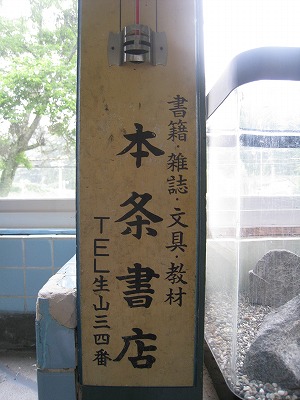 書籍・雑誌・文具・教材
本条書店
TEL生山三四番